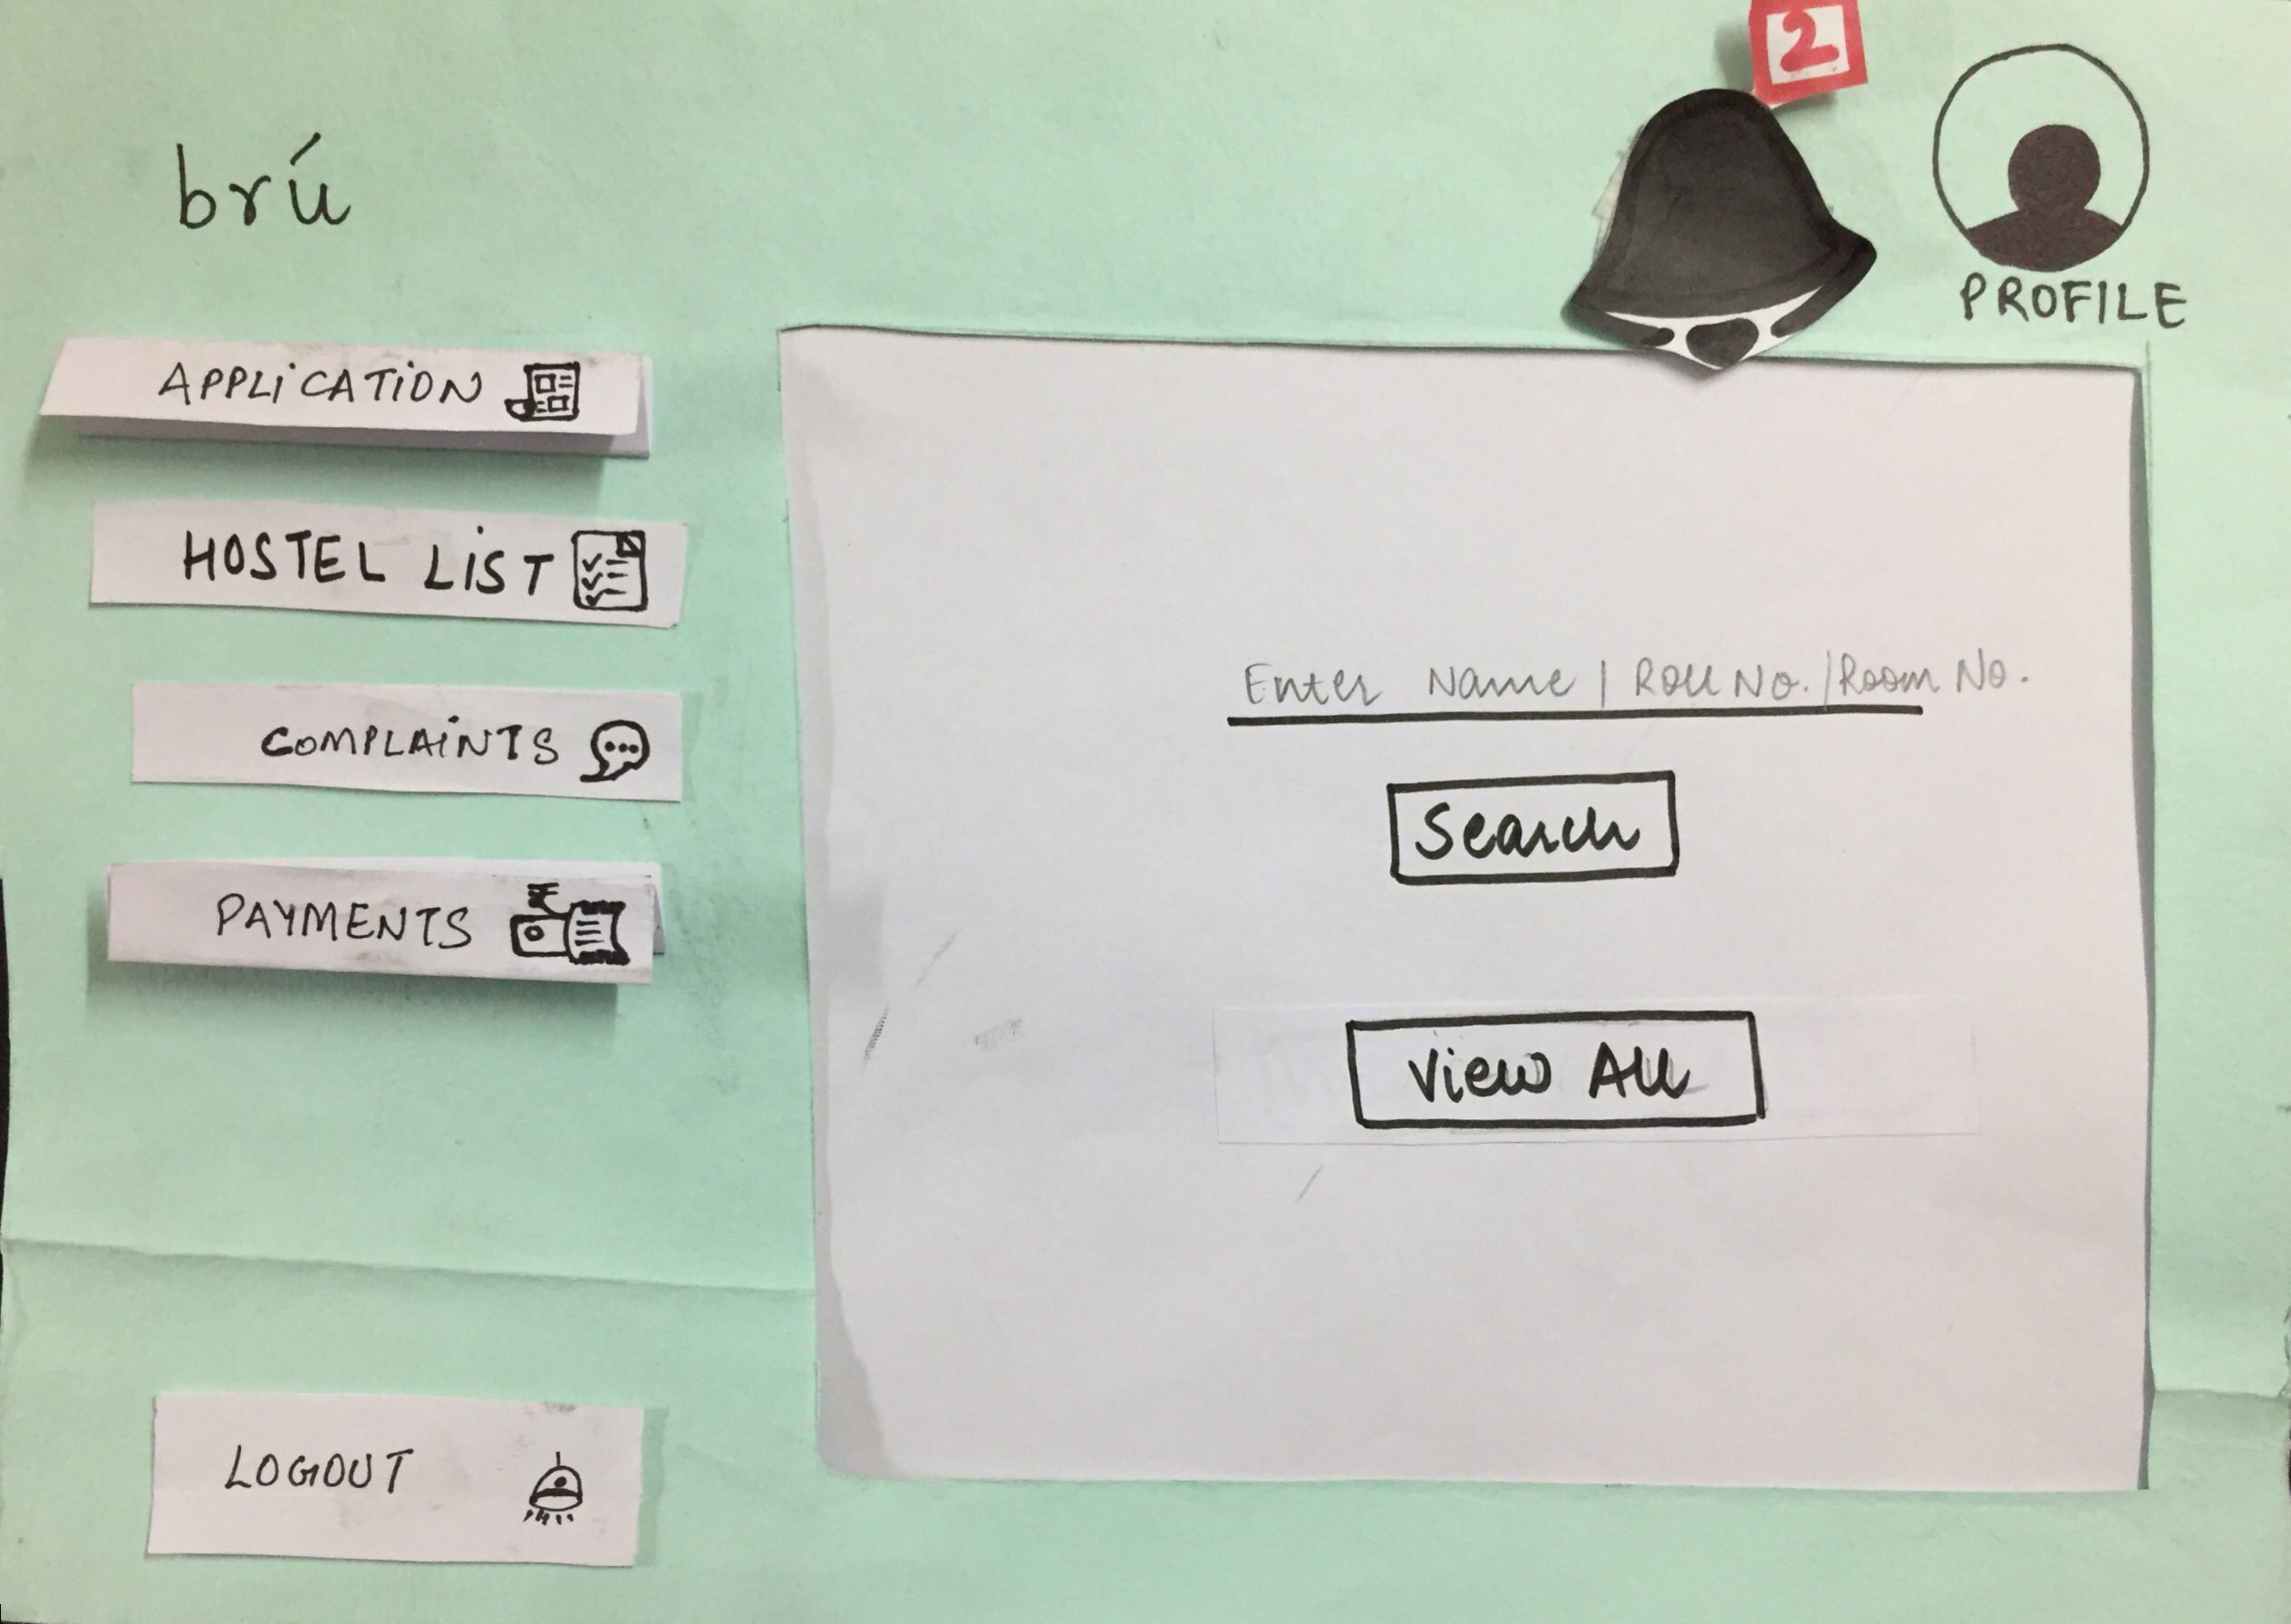 2
brú
PROFILE
APPLiCATiON
HOSTEL LiST
COMPLAiNTS
PAYMENTS
LOGOUT
Enter Name | Roll No. | Room No.
Search
View All